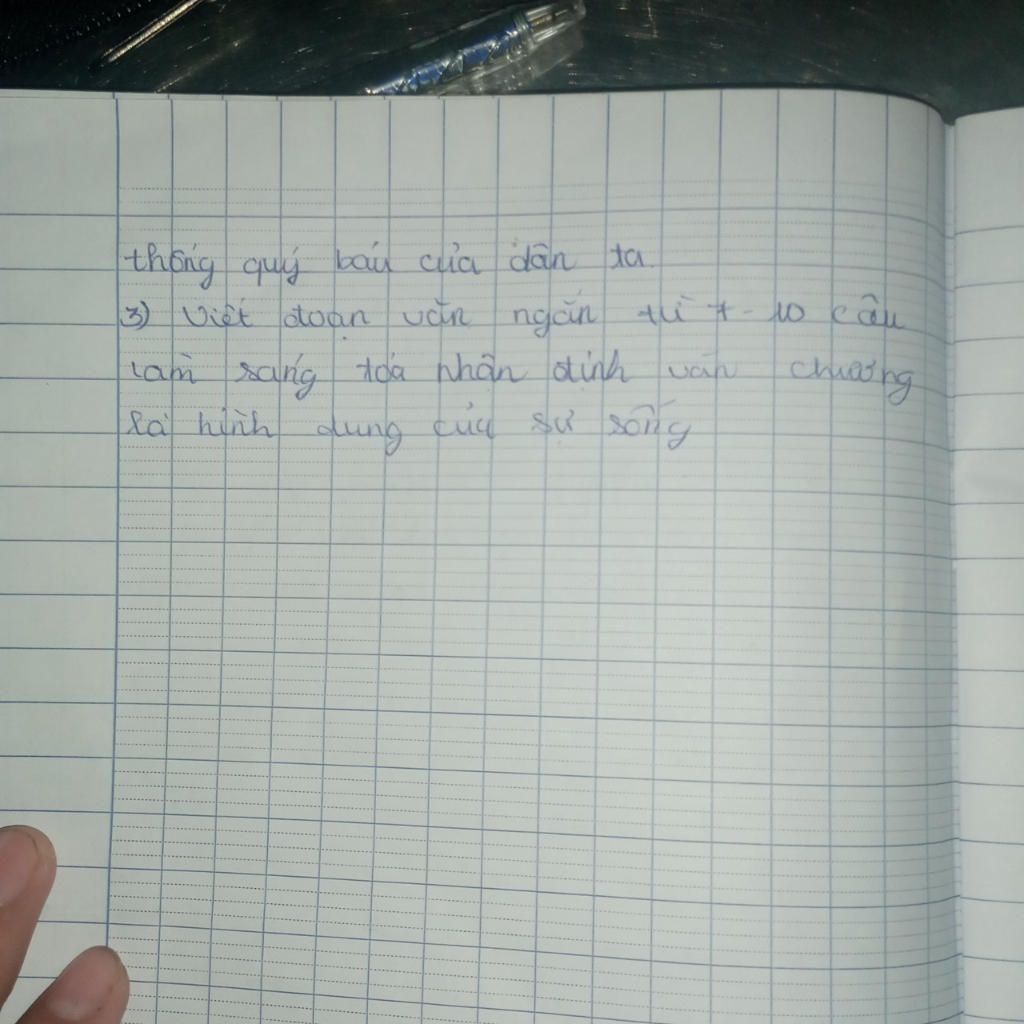 thống quý báu của dân ta.
3) Viết đoạn văn ngắn từ 7-10 câu
làm sáng tỏ nhận định văn chương
là hình dung của sự sống